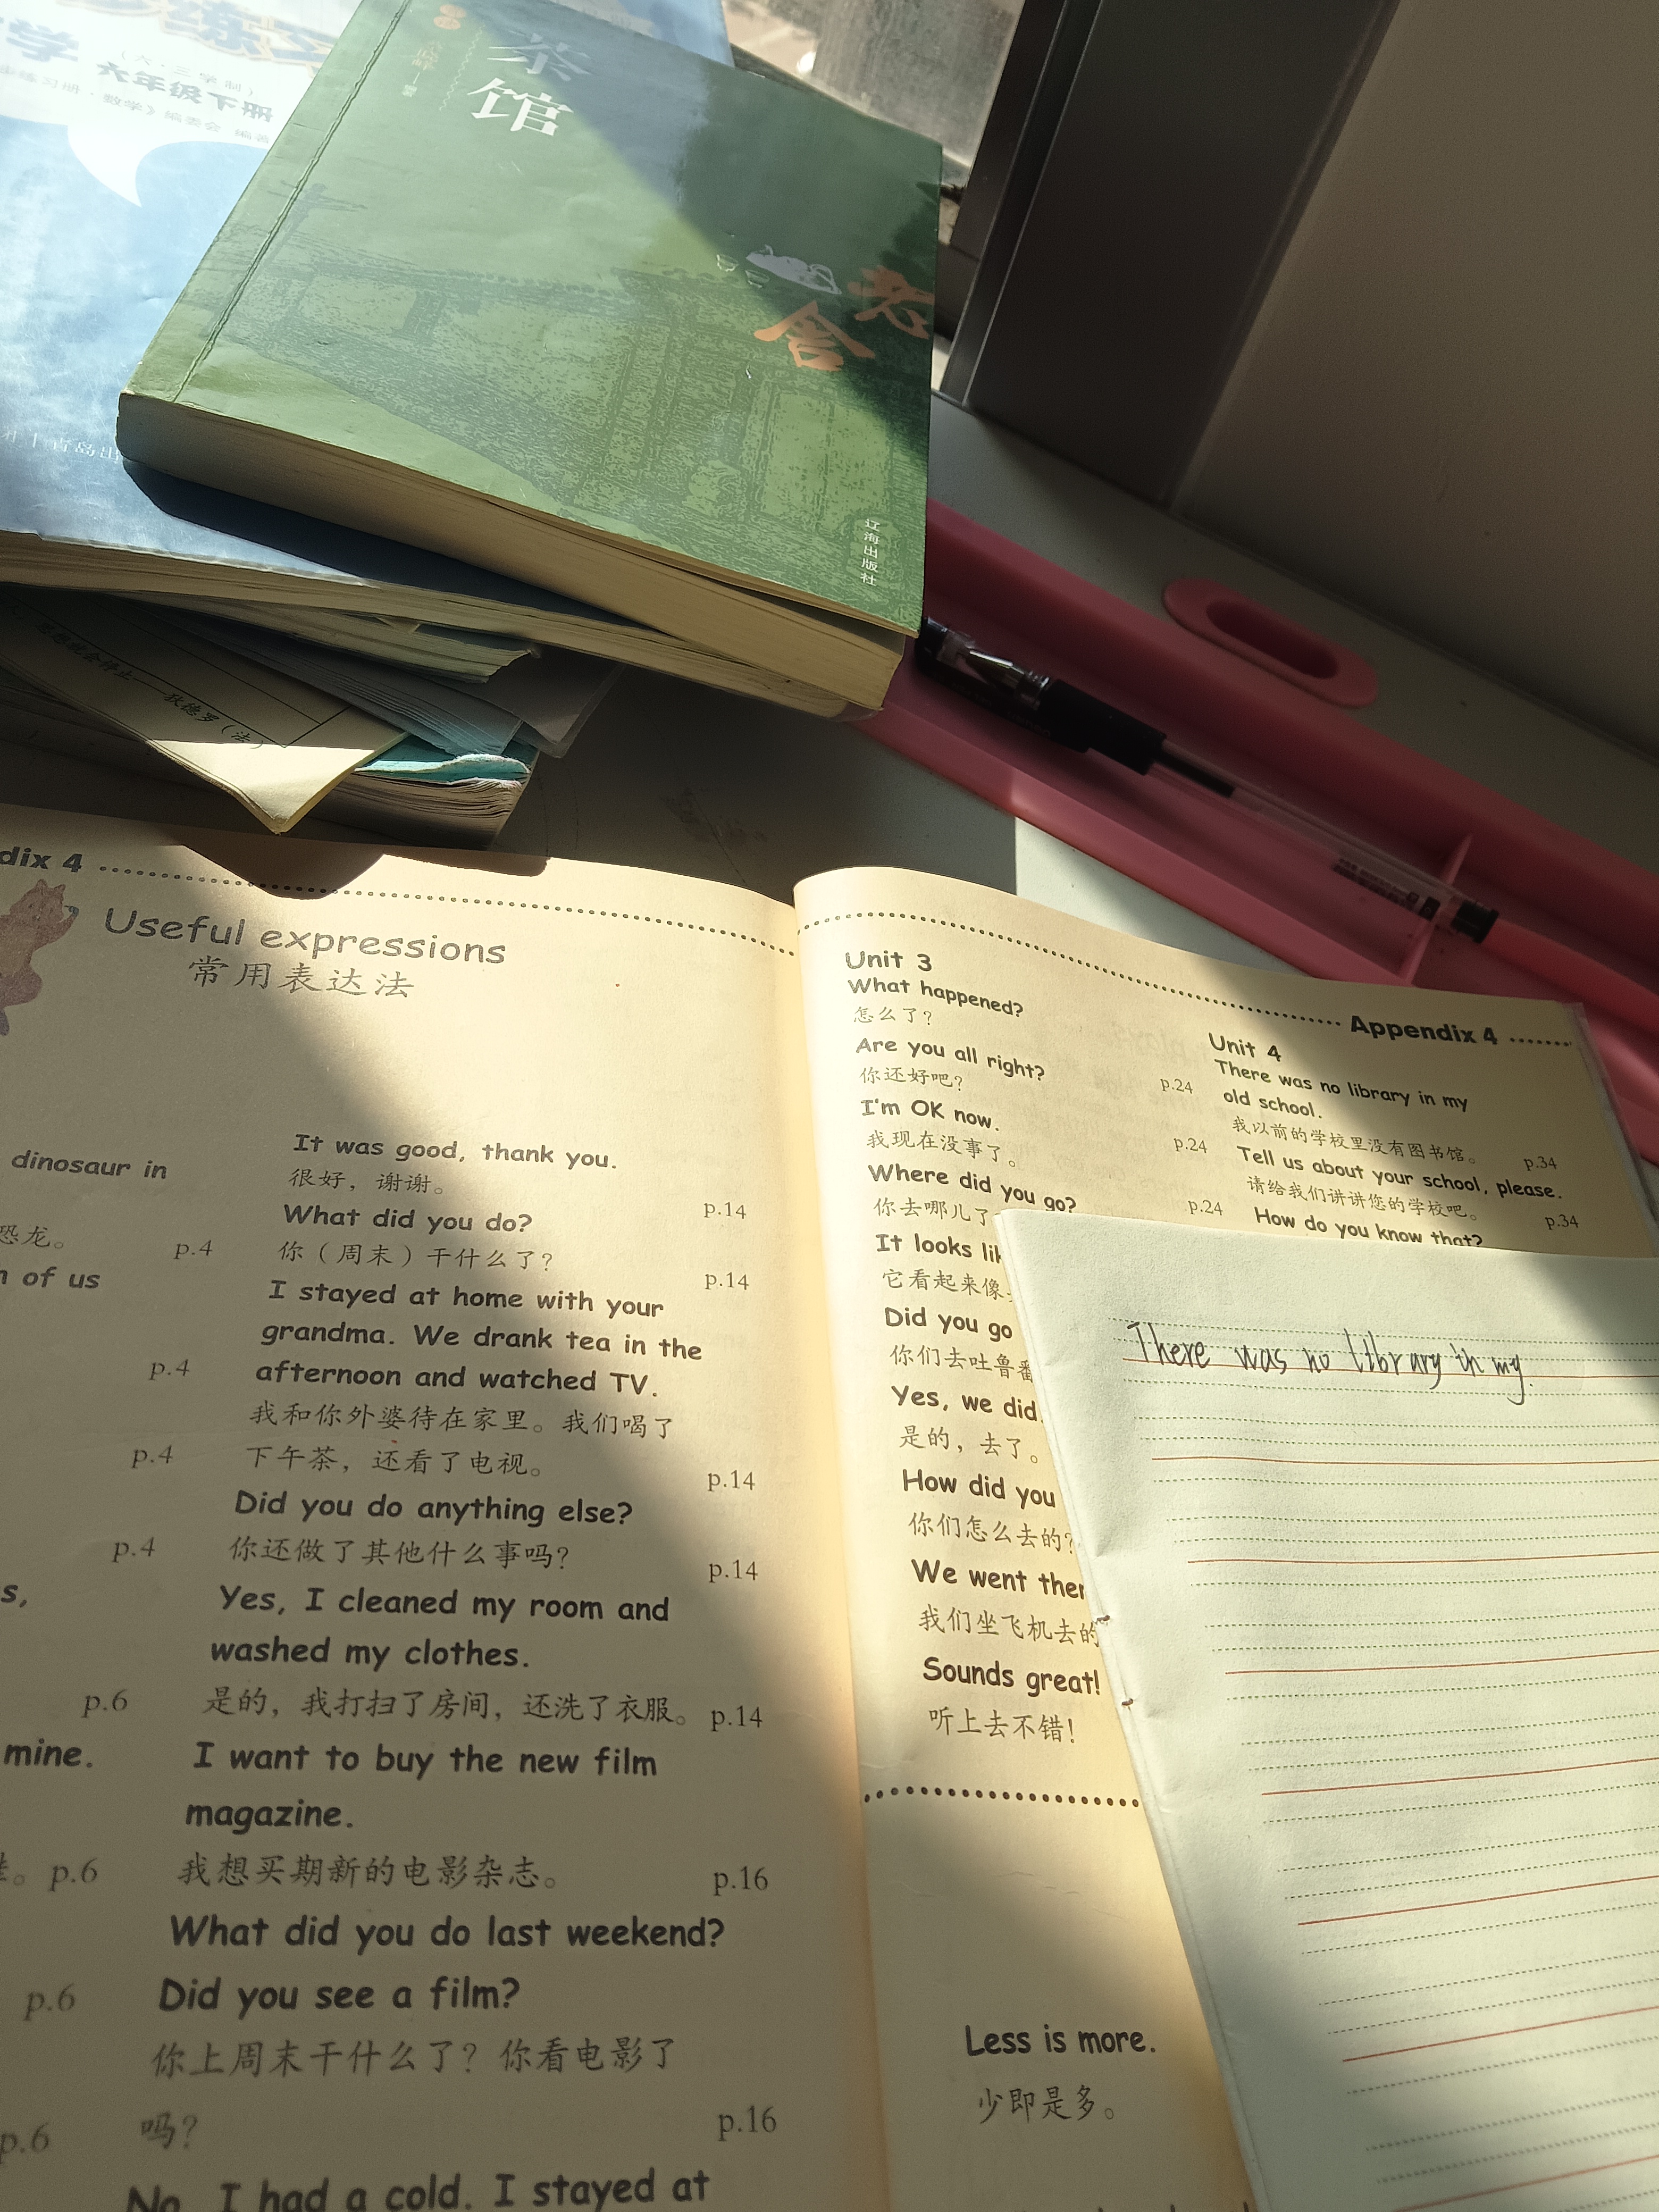 学
(六·三学制)
六年级下册
习册·数学》编委会 编著
茶
馆
老
舍
辽海出版社
青岛出
狄德罗(法)
dix 4
Useful expressions
常用表达法
dinosaur in
恐龙。 p.4
of us
p.4
p.4
p.4
s,
p.6
mine.
p.6
p.6
p.6
It was good, thank you.
很好，谢谢。 p.14
What did you do?
你（周末）干什么了？ p.14
I stayed at home with your
grandma. We drank tea in the
afternoon and watched TV.
我和你外婆待在家里。我们喝了
下午茶，还看了电视。 p.14
Did you do anything else?
你还做了其他什么事吗？ p.14
Yes, I cleaned my room and
washed my clothes.
是的，我打扫了房间，还洗了衣服。 p.14
I want to buy the new film
magazine.
我想买期新的电影杂志。 p.16
What did you do last weekend?
Did you see a film?
你上周末干什么了？你看电影了
吗？ p.16
No, I had a cold. I stayed at
Appendix 4
Unit 3
What happened?
怎么了？
Are you all right?
你还好吧？ p.24
I'm OK now.
我现在没事了。 p.24
Where did you go?
你去哪儿了 p.24
It looks lik
它看起来像
Did you go
你们去吐鲁番
Yes, we did.
是的，去了。
How did you
你们怎么去的？
We went ther
我们坐飞机去的
Sounds great!
听上去不错！
Less is more.
少即是多。
Unit 4
There was no library in my
old school.
我以前的学校里没有图书馆。 p.34
Tell us about your school, please.
请给我们讲讲您的学校吧。 p.34
How do you know that?
There was no library in my.